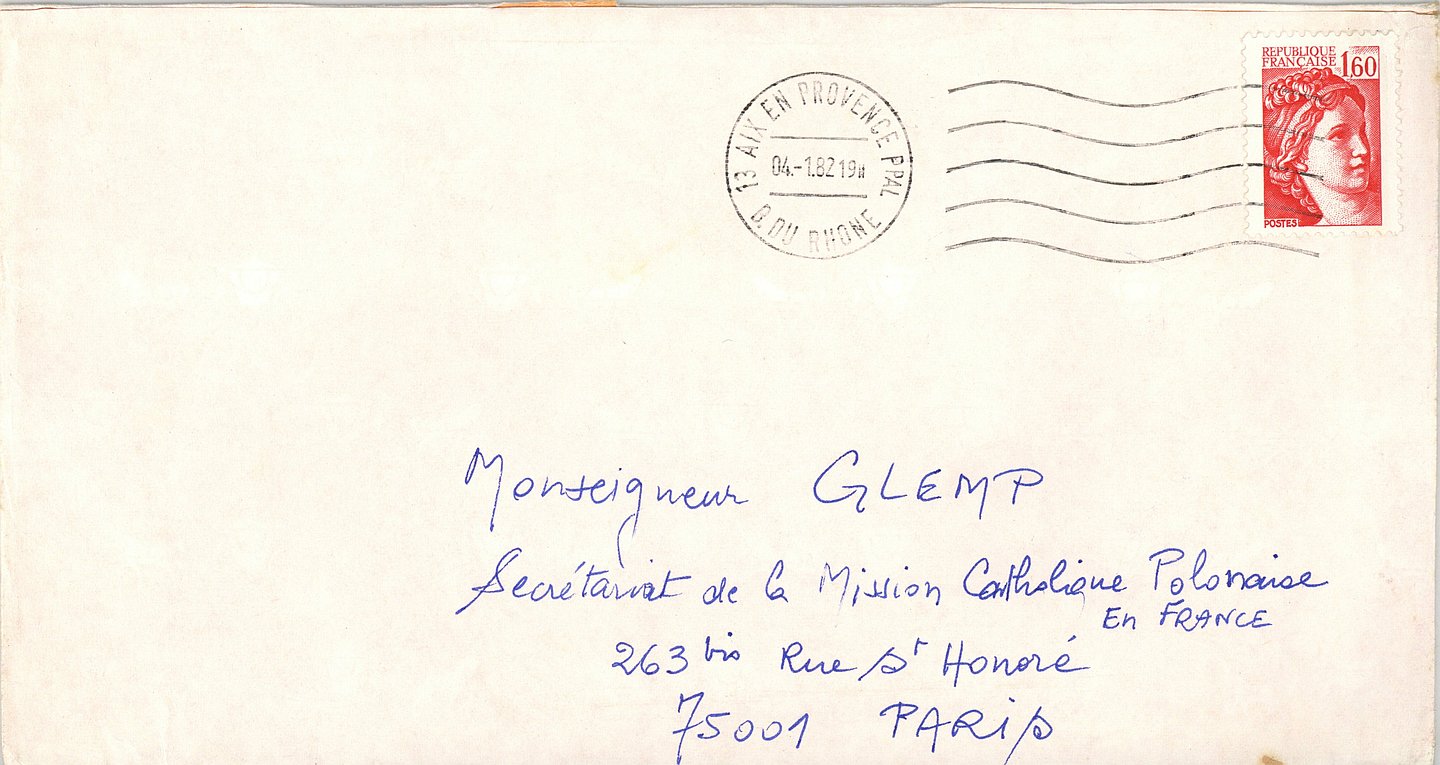 REPUBLIQUE
FRANÇAISE 1,60
POSTES
13 AIX EN PROVENCE PPAL
04.-1.82 19H
B. DU RHONE
Monseigneur GLEMP
Secrétariat de la Mission Catholique Polonaise
En FRANCE
263 bis Rue St Honoré
75001 PARIS